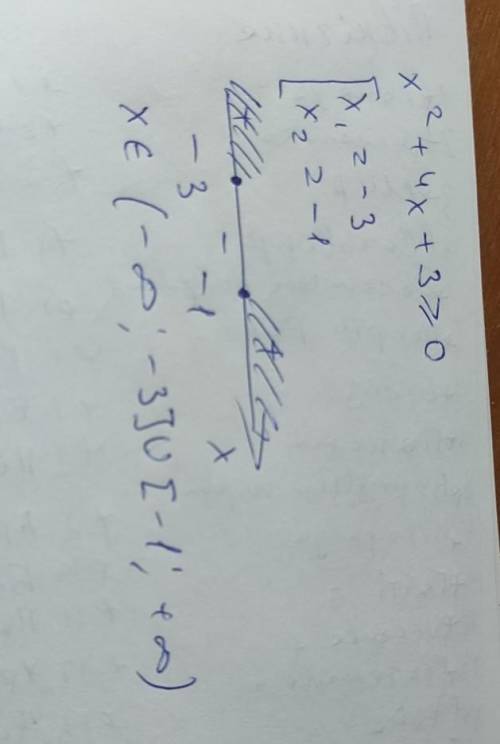 x² + 4x + 3 ≥ 0
[ x₁ = -3
x₂ = -1
+ - +
-3 -1 x
x ∈ (-∞; -3] ∪ [-1; +∞)